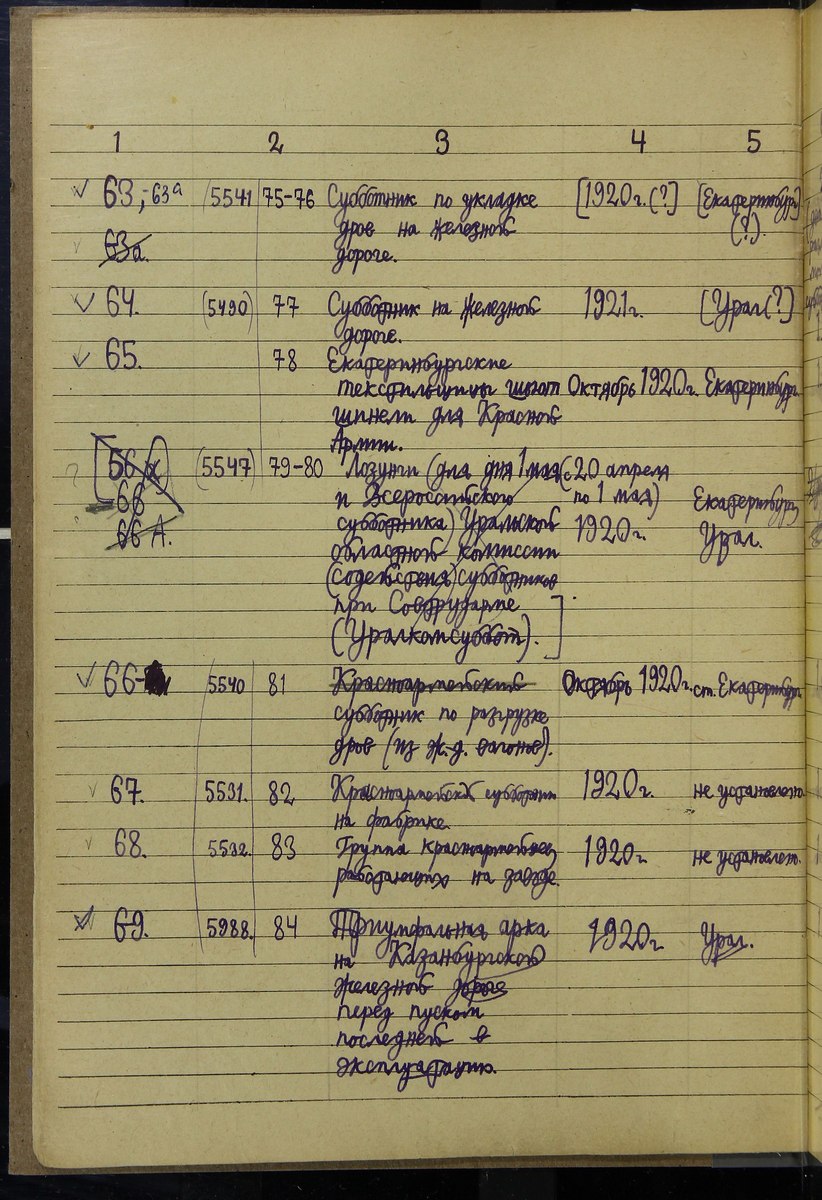 1 2 3 4 5
63,-63а (5541 75-76 Субботник по укладке [1920г.(?] [Екатеринбург]
дров на железной (?).
63а. дороге.
64. (5490) 77 Субботник на железной 1921г. [Урал(?]
дороге.
65. 78 Екатеринбургские
текстильщицы шьют Октябрь 1920г. Екатеринбург.
шинели для Красной
Армии.
[56а) (5547) 79-80 Лозунги (для дня 1 мая (с 20 апреля
66 и Всероссийского по 1 мая) Екатеринбург,
66А. субботника) Уральской 1920г. Урал.
областной комиссии
(содействия) субботников
при Совтрударме
(Уралкомсуббот).]
66- 5540 81 Красноармейский Октябрь 1920г. ст. Екатеринбург.
субботник по разгрузке
дров (из ж.д. вагонов).
67. 5531. 82 Красноармейский субботник 1920г. не установлено.
на фабрике.
68. 5532. 83 Группа красноармейцев, 1920г. не установлено.
работающих на заводе.
69. 5988. 84 Триумфальная арка 1920г. Урал.
на Казанбургской
железной дороге
перед пуском
последней в
эксплуатацию.